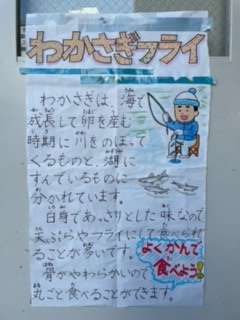 わかさぎフライ
わかさぎは、海で
成長して卵を産む
時期に川をのぼって
くるものと、湖に
すんでいるものに
分かれています。
白身であっさりとした味なので
天ぷらやフライにして食べられ
ることが多いです。
骨がやわらかいので
丸ごと食べることができます。
よくかんで
食べよう!